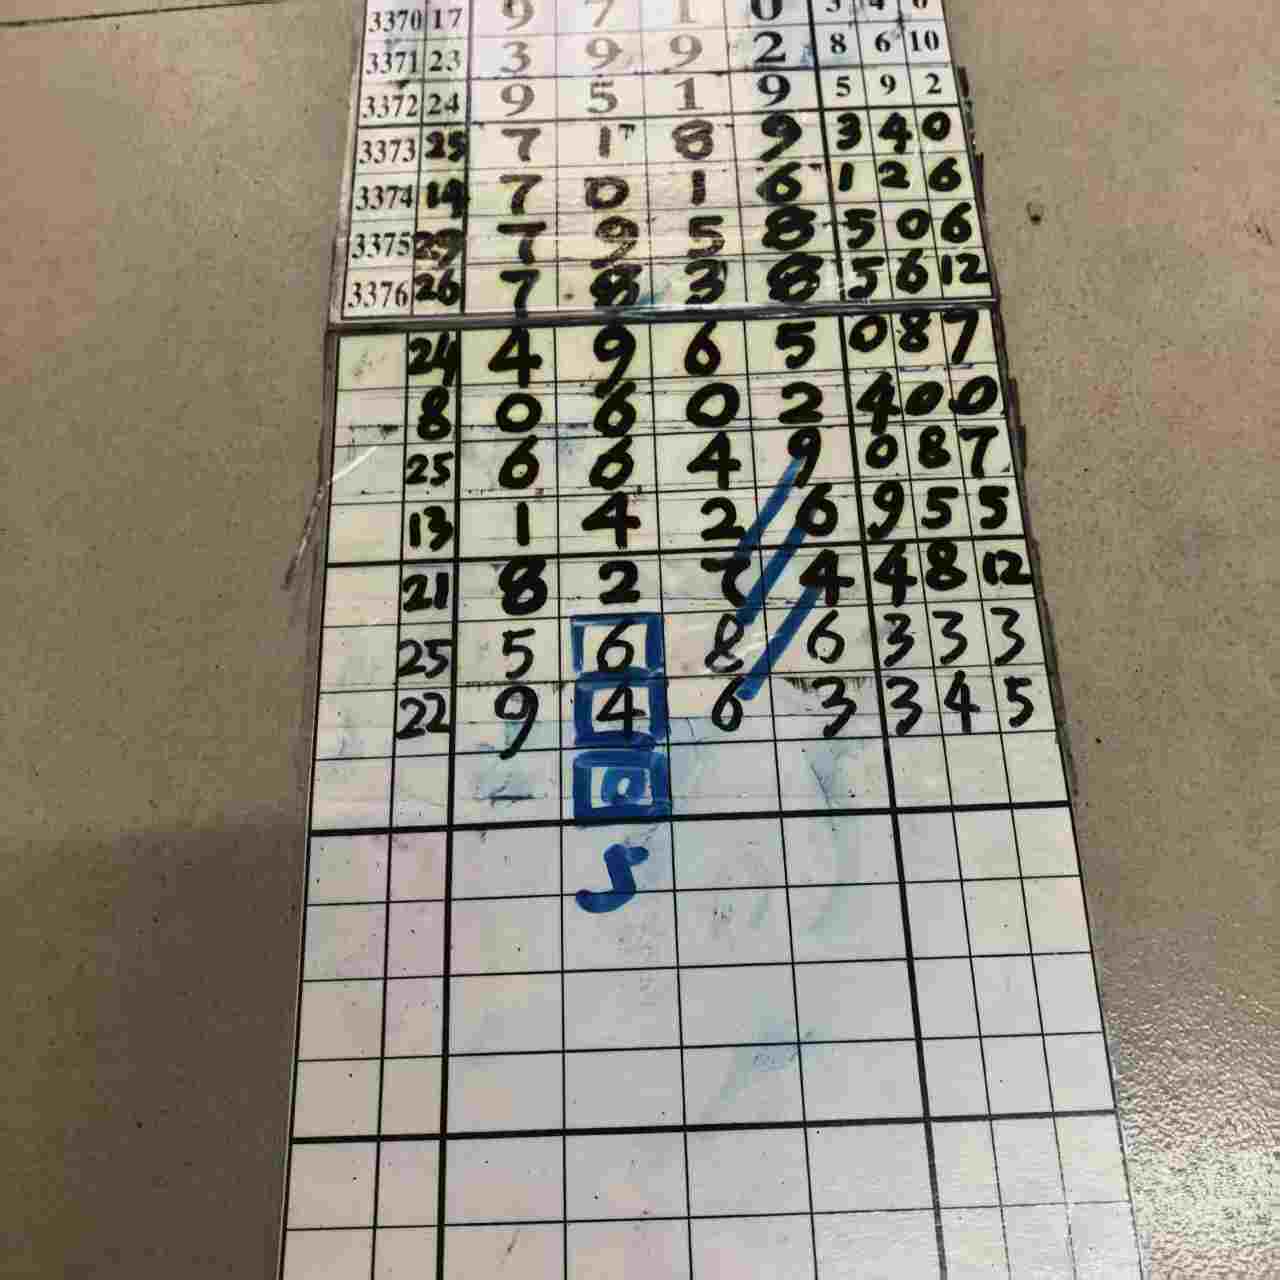 3370 17 9 7 1 0 3 4 0
3371 23 3 9 9 2 8 6 10
3372 24 9 5 1 9 5 9 2
3373 25 7 1 8 9 3 4 0
3374 14 7 0 1 6 1 2 6
3375 29 7 9 5 8 5 0 6
3376 26 7 8 3 8 5 6 12
24 4 9 6 5 0 8 7
8 0 6 0 2 4 0 0
25 6 6 4 9 0 8 7
13 1 4 2 6 9 5 5
21 8 2 7 4 4 8 12
25 5 6 8 6 3 3 3
22 9 4 6 3 3 4 5
0
5